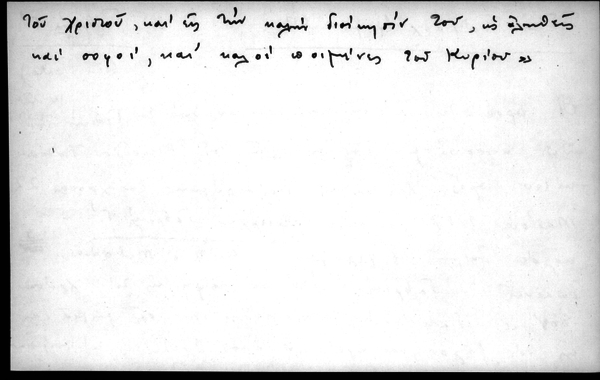 τοῦ χριστοῦ, καί εἰς τήν καλήν διοίκησίν του, ὡς ἀληθεῖς
καί σοφοί, καί καλοί ποιμένες τοῦ Κυρίου»